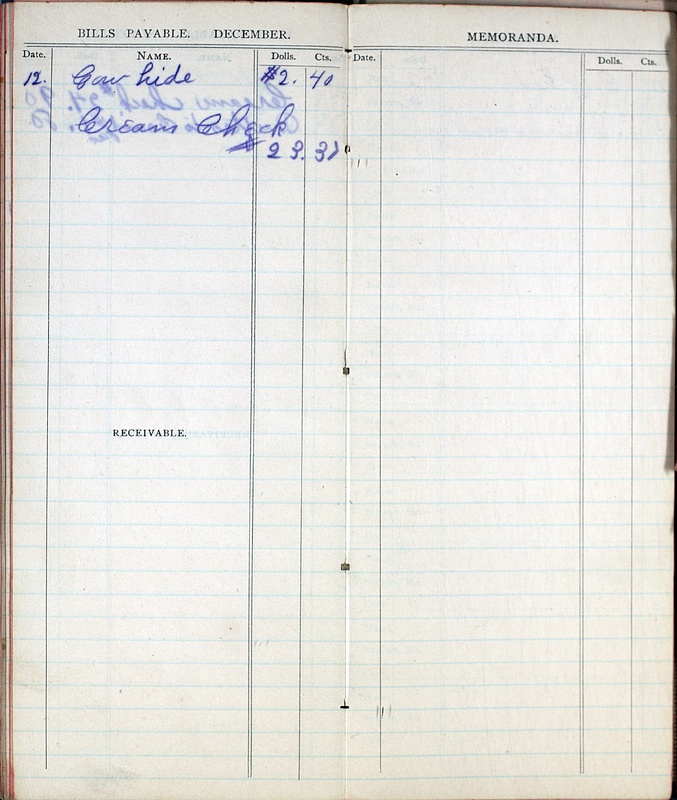 BILLS PAYABLE. DECEMBER.
Date. Name. Dolls. Cts.
12. Cow hide #2. 40
Cream Check
23.
RECEIVABLE.
MEMORANDA.
Date. Dolls. Cts.